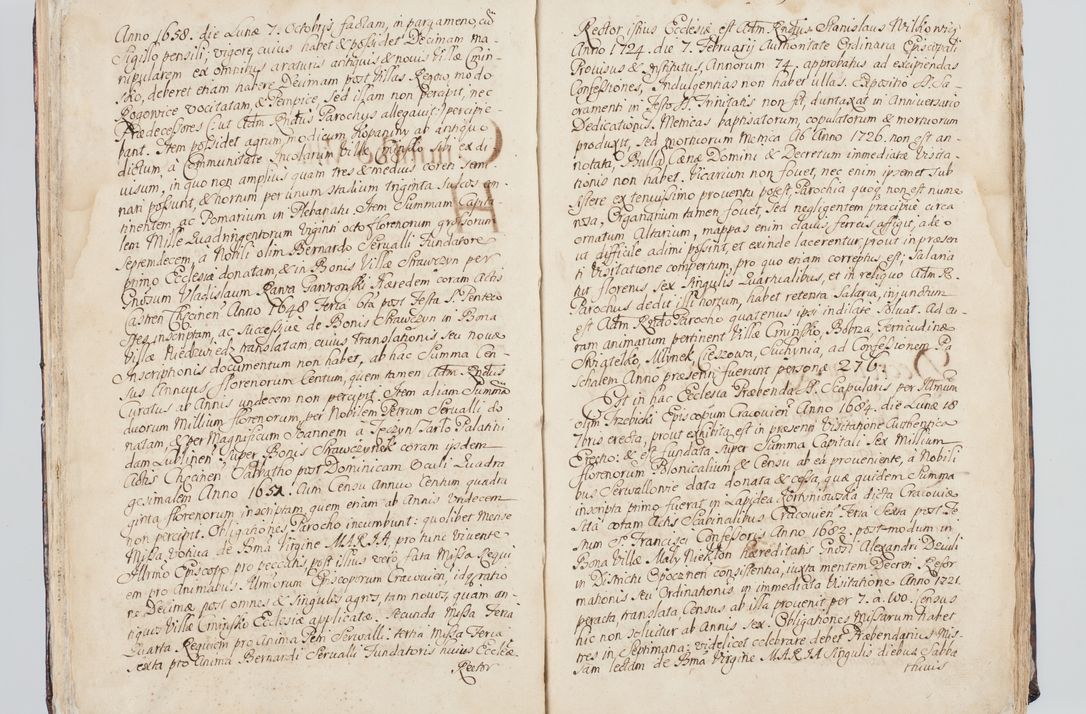 Anno 1658. die Lunæ 7. Octobris factam, in pargameno, cũ
Sigillo pensili, vigore, cuius habet & possidet Decimam ma-
nipularem ex omnibus araturis antiquis & novis Villæ Cmin-
sko, deberet etiam habere Decimam post Villas Rogow, modo
Rogowice vocitatam, & Sempice, sed illam non percipit, nec
Prædecessores (: ut Adm. Rndus Parochus allegavit:) percipie-
bant. Item possidet agrum modicum Kopaniny ab antiquo
dictum, à Communitate Incolarum Villæ Cminsko sibi ex di
visum, in quo non amplius quam tres & medius coreti semi
nari possunt, & hortum per unum stadium triginta sulcos con-
tinentem, ac Pomarium in Plebanatu. Item Summam Capita
lem Mille Quadringentorum Viginti octo florenorum grossorum
Septemdecem, a Nobili olim Bernardo Servalli Fundatore
primo Ecclesiæ donatam, & in Bonis Villæ Strawczyn per
Gnosum Vladislaum Rawa Gawronski Hæredem coram Actis
Castren Chęcinen Anno 1648 Feria 6ta post Festa Sta Penteco
stes inscriptam, ac successive de Bonis Strawczyn in Bona
Villæ Niedzwiedz translatam, cuius Translationis seu novæ
Inscriptionis documentum non habet, ab hac Summa Cen-
sus Annuus florenorum Centum, quem tamen Adm. Rndus
Curatus ab Annis undecem non percipit. Item aliam Summã
duorum Millium florenorum, per Nobilem Petrum Servalli do
natam, & per Magnificum Joannem à Tęczyn Tarlo Palatini
dam Lublinen super Bonis Strawczynek coram ijsdem
Actis Chęcinen Sabbatho post Dominicam Oculi Quadra
gesimalem Anno 1651. Cum Censu Annuo Centum quadra
ginta florenorum inscriptam, quem etiam ab Annis Undecem
non percipit. Obligationes Parocho incumbunt: quolibet Mense
Missa Votiva de Bma Virgine MARIA, pro hunc vivente
Illrmo Episcopo pro peccatis, post illius verò fata Missa Requi
em pro Animabus Illmorum Episcoporum Cracovien, idq ratio
ne Decimæ post omnes & singulos agros, tam novos, quam an-
tiquos Villæ Cminsko Ecclesiæ applicatæ. Secunda Missa Feria
Quarta Requiem pro Anima Petri Serwalli: tertia Missa Feria
sexta pro Anima Bernardi Servalli Fundatoris huius Ecclesiæ
Rector
Rector istius Ecclesiæ est Adm. Rndus Stanislaus Wilkowicz
Anno 1724. die 7. Februarij Authoritate Ordinaria Episcopali
Provisus & Institutus, Annorum 74. approbatus ad excipiendas
Confessiones, Indulgentias non habet ullas. Expositio SS. Sa-
cramenti in Festo SS. Trinitatis non fit, duntaxat in Anniversario
Dedicationis. Metricas baptisatorum, copulatorum & mortuorum
produxit, sed mortuorum Metrica Ab Anno 1726. non est an-
notata, Bulla Cænæ Domini & Decretum immediatæ Visita
tionis non habet. Vicarium non fovet, nec enim ipsemet sub
sistere ex tenuissimo proventu potest, Parochia quoq non est nume
rosa, Organarium tamen fovet, sed negligentem præcipuè circa
ornatum Altarium, mappas enim clavis ferreis affigit, adeo
ut difficile adimi possint, et exinde lacerentur, prout in præsen
ti Visitatione compertum, pro quo etiam correptus est; Salaria
tur florenis Sex singulis Quartualibus, et in reliquo Adm. R.
Parochus dedit illi horum, habet retenta Salaria, injunctum
est Adm. Rndo Parocho quatenus ipsi indilatè solvat. Ad cu-
ram animarum pertinent Villæ Cminsko, Bobrza, Ferricudinæ
Swiatelko, Mlynek, Ciszowa, Suchynia, ad Confessionem Pa
schalem Anno præsenti fuerunt personæ 276.
Est in hac Ecclesia Præbenda S. Scapularis per Illrmum
Olim Trzebicki Episcopum Cracovien Anno 1684. die Lunæ 18
7bris erecta, prout exhibita est in præsenti Visitatione Authentica
Erectio: & est fundata super Summa Capitali Sex Millium
florenorum Polonicalium & Censu ab ea proveniente, à Nobili
bus Serwallowie data donata & cessa, quæ quidem Summa
inscripta primo fuerat in Lapidea Fortyniowska dicta Cracoviæ
Sita coram Actis Scabinalibus Cracovien Feria Sexta post Fe-
stum S. Francisci Confessoris Anno 1682. post modum in
Bona Villæ Maly Niekłon hæreditatis Gnosi Alexandri Deiuli
in Districtu Opocznen consistentia, iuxta mentem Decreti Refor
mationis seu Ordinationis in immediata Visitatione Anno 1721.
peracta translata, Census ab illa provenit per 7. a. 100. Census
hic non solvitur ab Annis Sex. Obligationes Missarum habet
tres in Septimana: videlicet celebrare debet Præbendarius Mis-
sam lectam de Bma Virgine MARIA singulis diebus Sabba
thinis